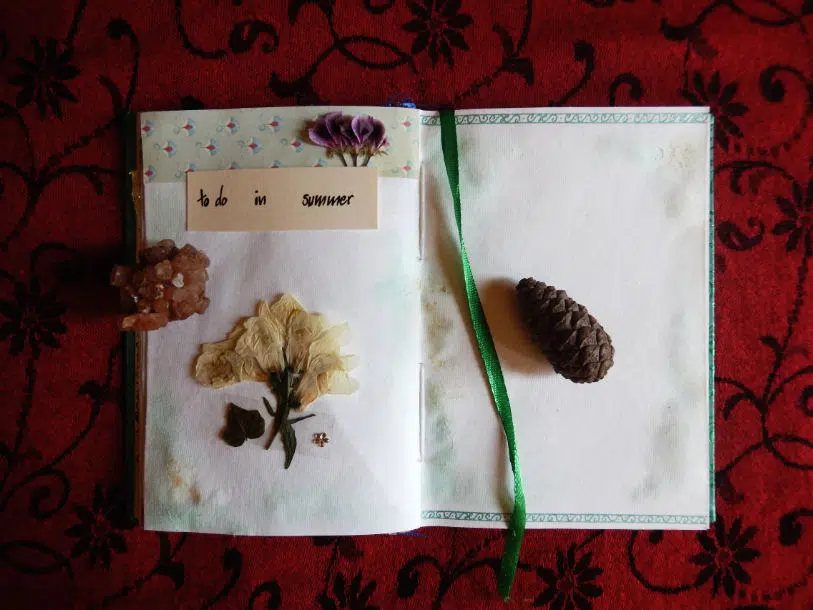 to do in summer